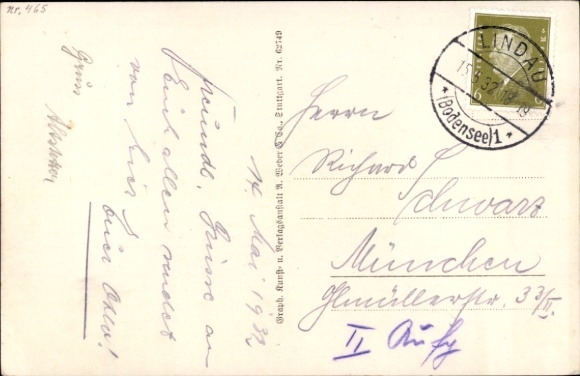 Nr. 465
14 Mai 1932
freundl. Grüsse an
Euch allen sendet
von hier
Euer Otto!
Gruss
Graph. Kunst- u. Verlagsanstalt R. Weber & Co., Stuttgart. Nr. 62749
LINDAU
15.5.32.18-19
* (Bodensee) 1 *
6 6
Herrn
Richard
Schwarz
München
Ehlmüllerstr. 33/II.
II Aufg